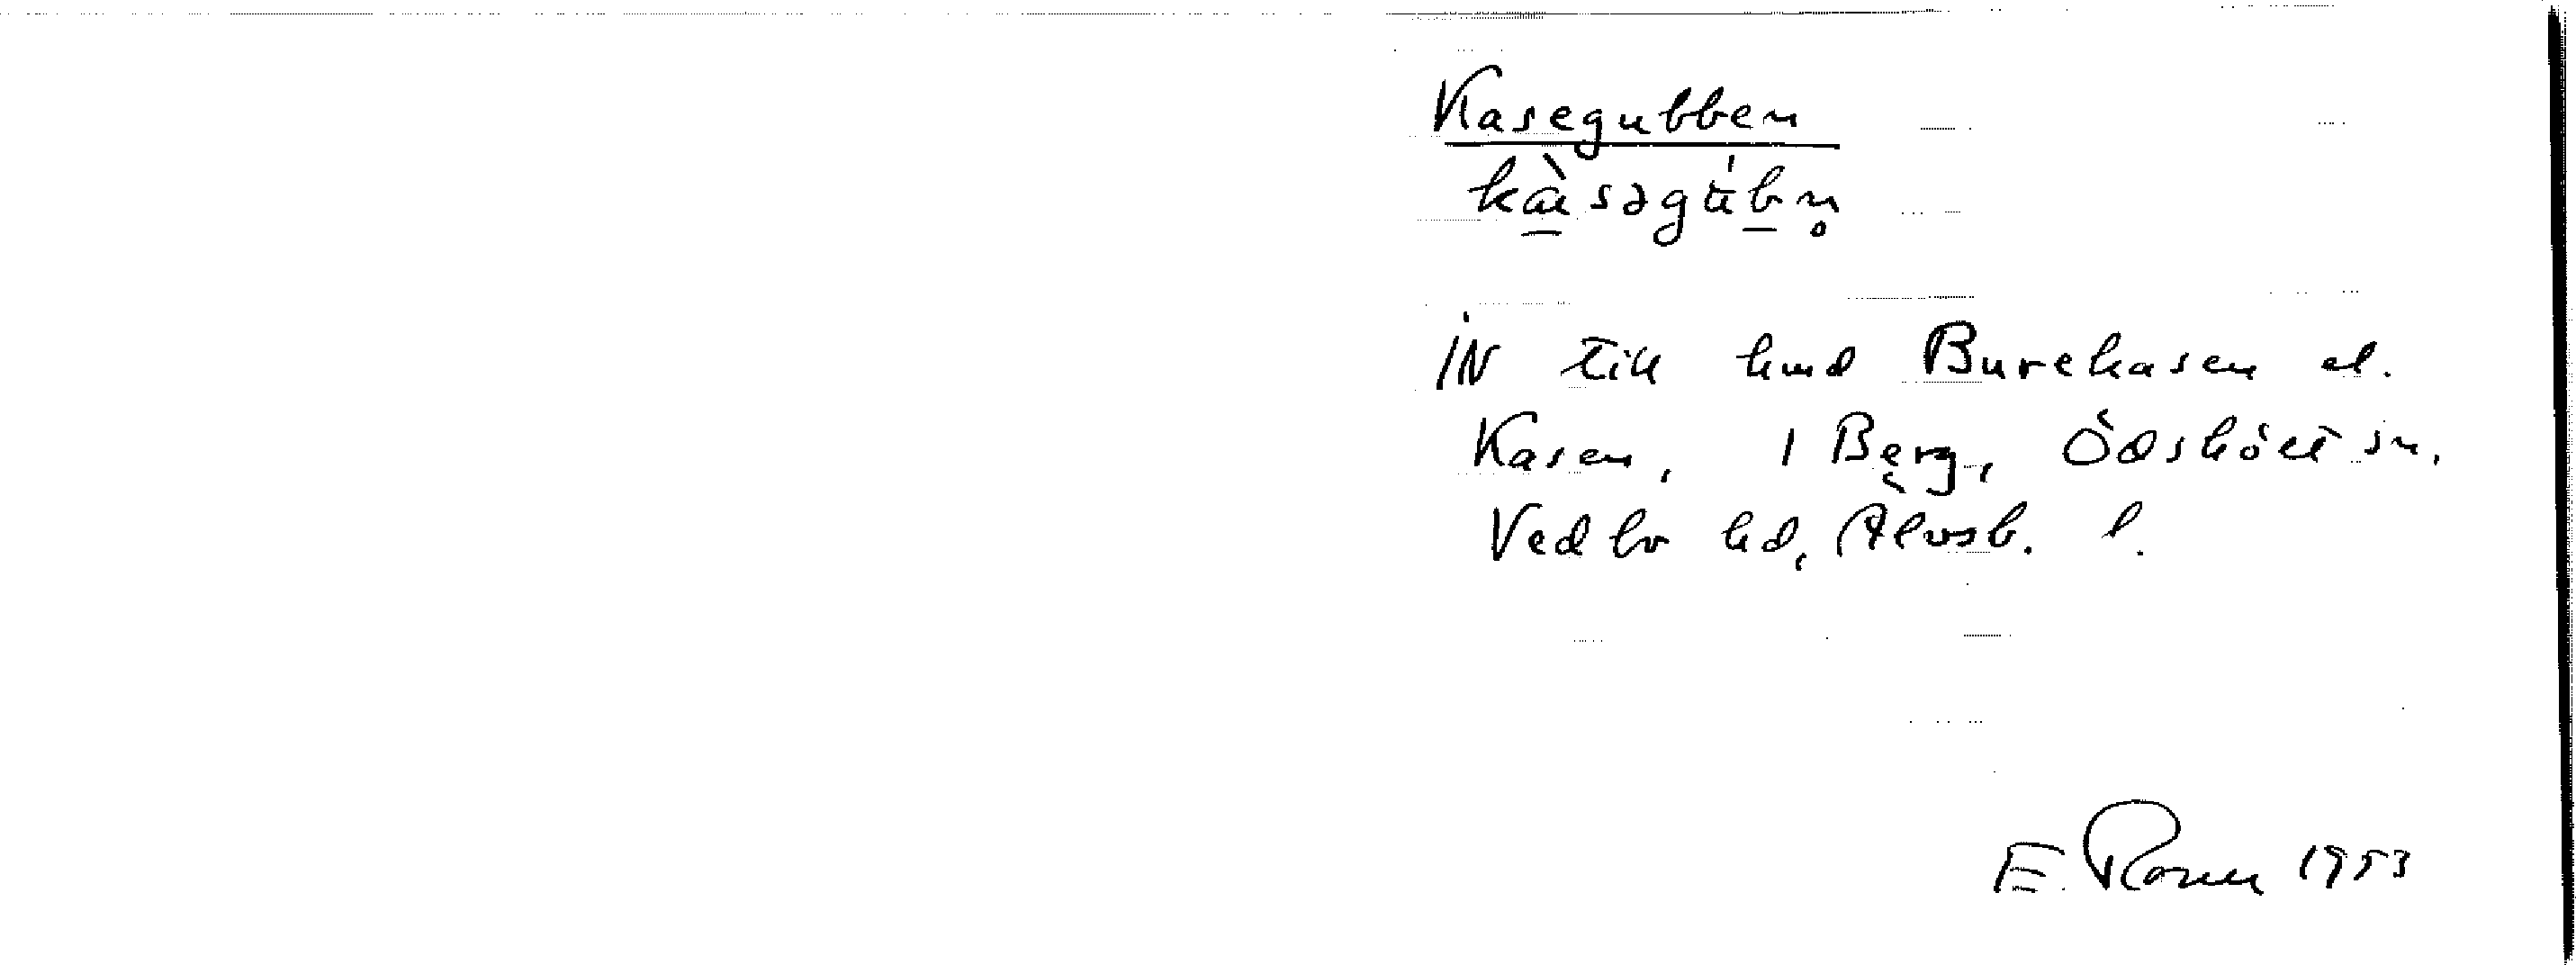 Kasegubben
kàsəgúbn̥
IN till hmd Burekasen el.
Kasen, 1 Berg, Ödsköelt sn,
Vedbo hd, Älvsb. l.
E. Rosell 1953